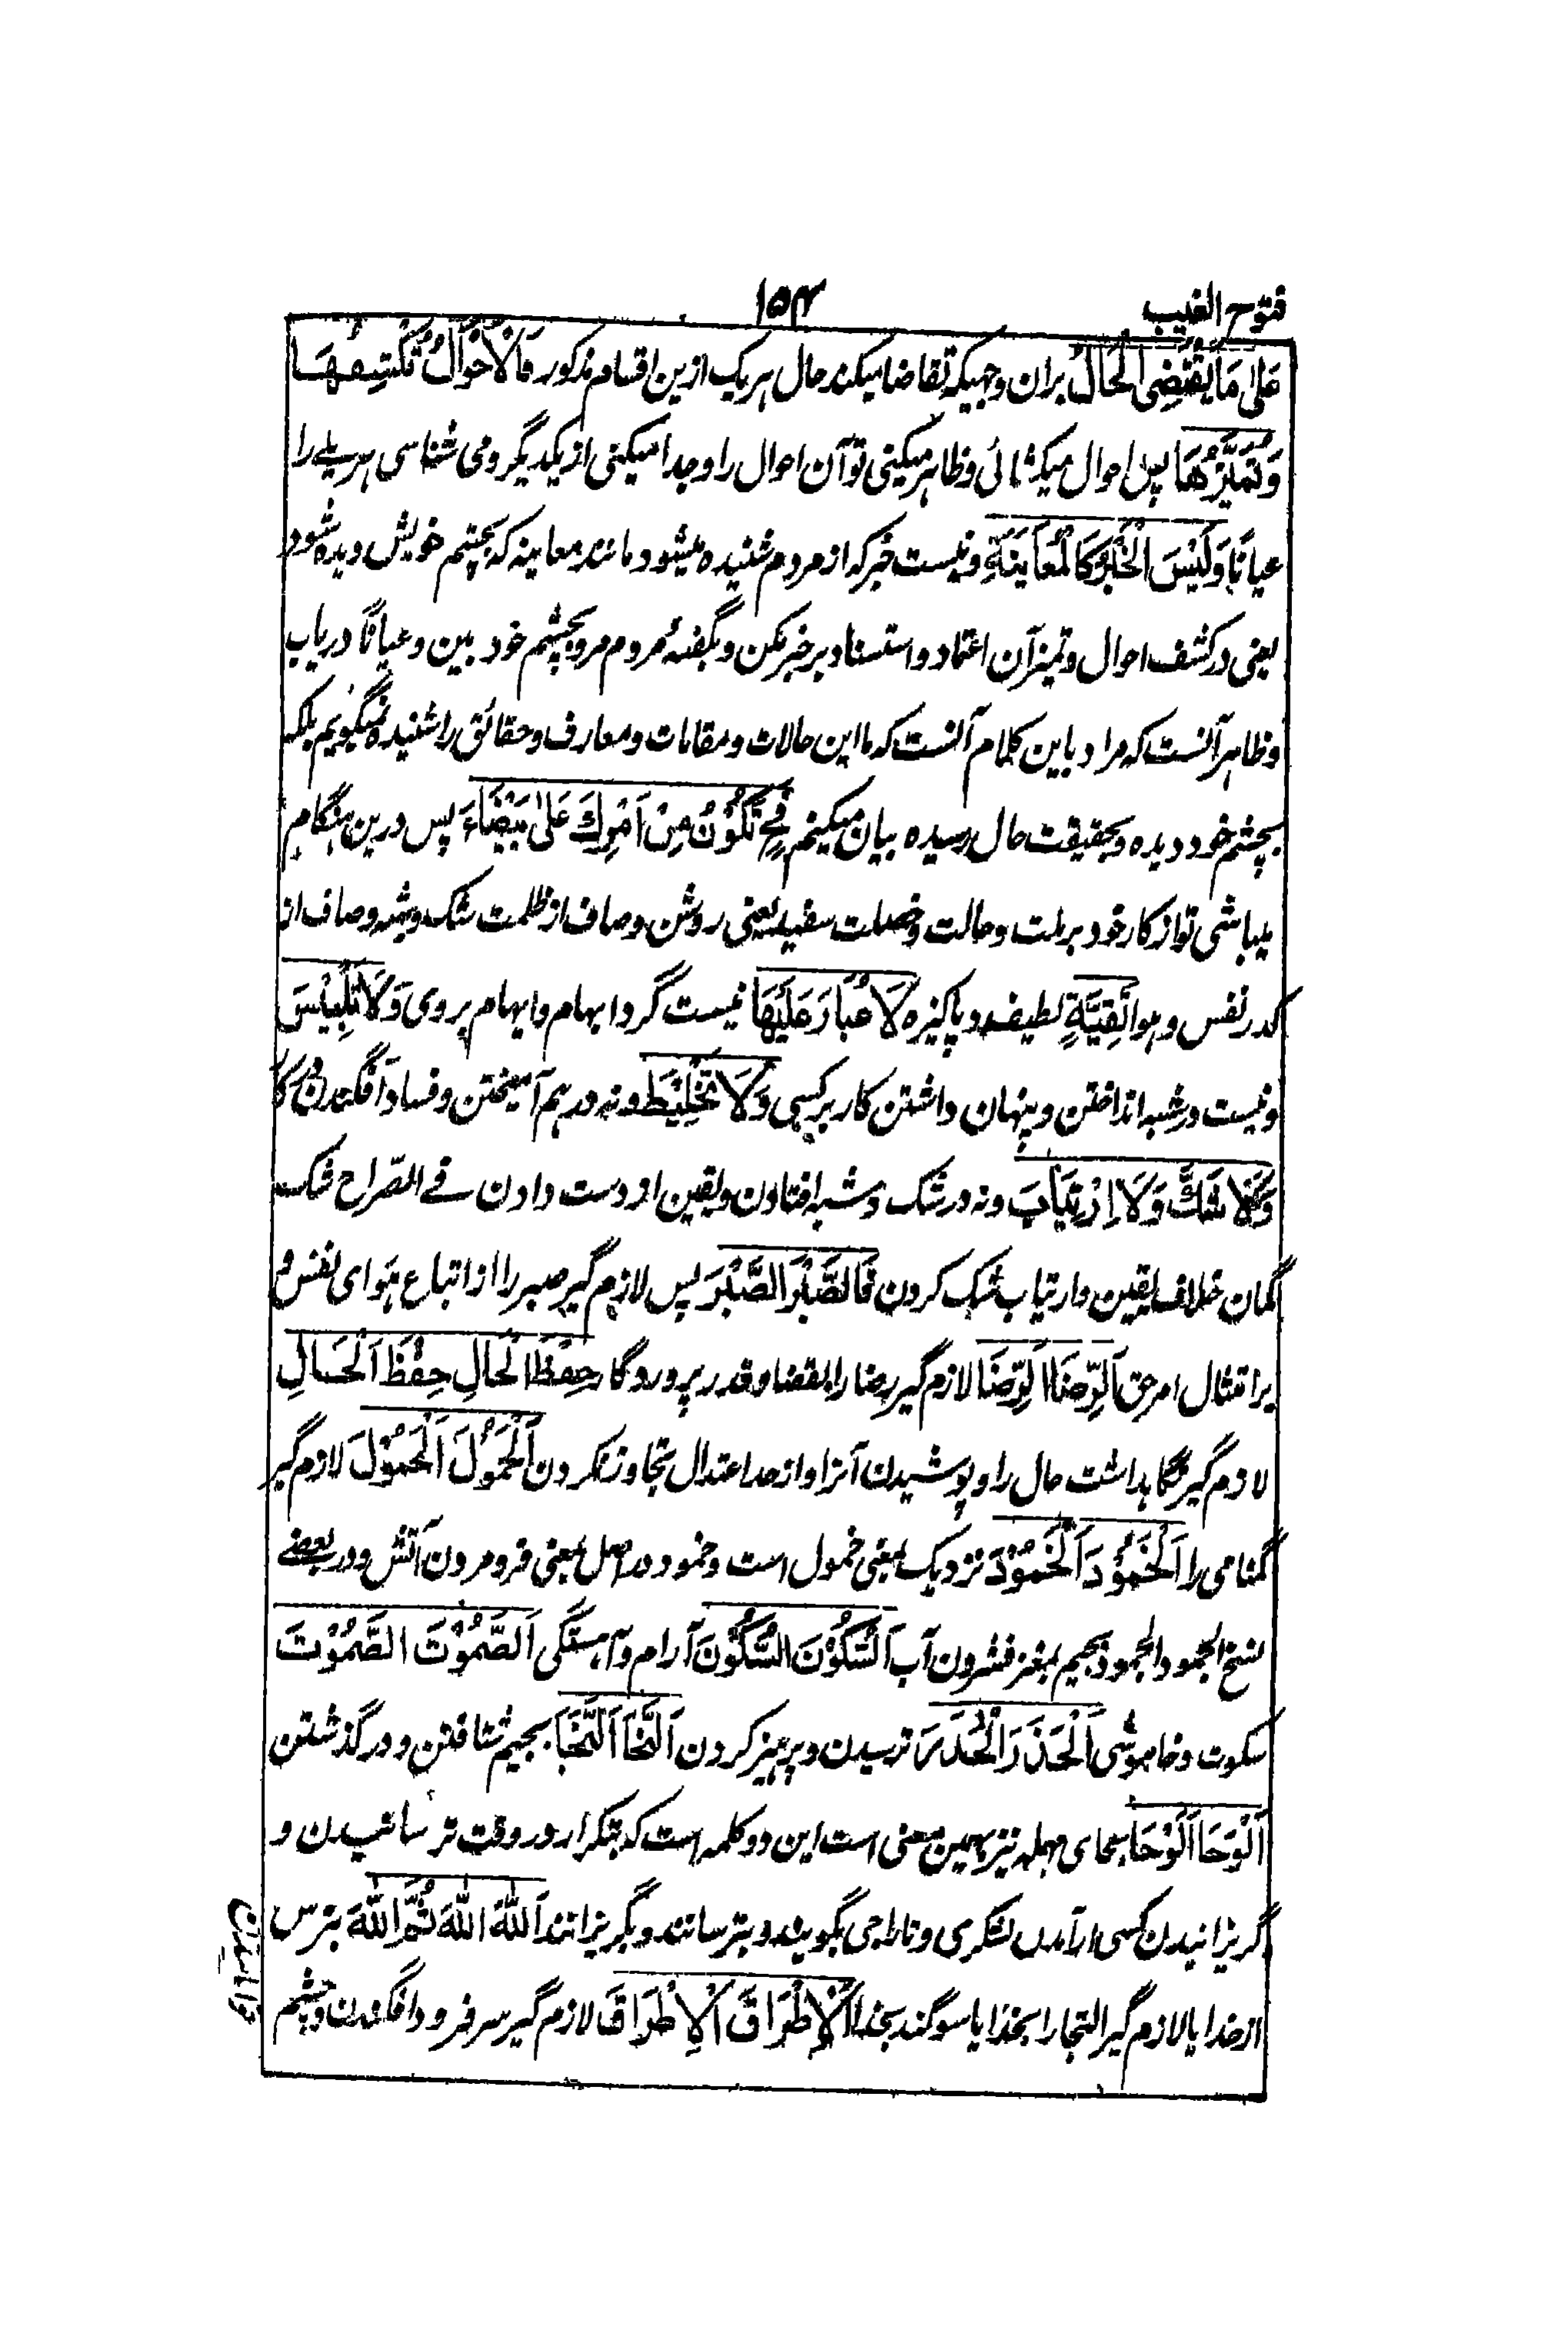 فتوح الغیب
۱۵۴
عَلیٰ مَا یَقْتَضِی الْحَالُ بران وجهیکه تقاضا میکند حال هر یک ازین اقسام مذکور فَالْاَحْوَالُ تَکْشِفُهَا
وَتُمَیِّزُهَا پس احوال میکشائی وظاهر میکنی تو آن احوال را وجدا میکنی از یکدیگر ومی شناسی هر یکے را
عیانًا وَلَیْسَ الْخَبَرُ کَالْمُعَایَنَةِ ونیست خبر که از مردم شنیده میشود مانند معاینه که بچشم خویش دیده شود
یعنی در کشف احوال وتمیز آن اعتماد واستناد بر خبر مکن وبگفتهٔ مردم مرو بچشم خود ببین وعیانًا دریاب
وظاهر آنست که مراد باین کلام آنست که ما این حالات ومقامات ومعارف وحقائق را شنیده نمیگویم بلکه
بچشم خود دیده وبحقیقت حال رسیده بیان میکنیم فَحِ تَکُوْنُ مِنْ اَمْرِكَ عَلیٰ بَیْضَاءَ پس درین هنگام
میباشی تو از کار خود بر ملت وحالت وخصلت سفید یعنی روشن وصاف از ظلمت شک وشبه وصاف از
کدر نفس وهوا نَقِیَّةٍ لطیف وپاکیزه لَا غُبَارَ عَلَیْهَا نیست گرد ابهام وایهام بر وی وَلَا تَلْبِیْسَ
ونیست در شبه انداختن وپنهان داشتن کار بر کسی وَلَا تَخْلِیْطَ ونه در هم آمیختن وفساد افگندن در کار
وَلَا شَكَّ وَلَا اِرْتِیَابَ ونه در شک وشبه افتادن ویقین از دست دادن فے الصّراح شک
گمان خلاف یقین وارتیاب شک کردن فَالصَّبْرَ الصَّبْرَ پس لازم گیر صبر را از اتباع هوای نفس و
بر امتثال امر حق اَلرِّضَا الرِّضَا لازم گیر رضا را بقضا وقدر پروردگار حِفْظَ الْحَالِ حِفْظَ الْحَالِ
لازم گیر نگاهداشت حال را وپوشیدن آنرا واز حد اعتدال تجاوز نکردن اَلْخُمُوْلَ اَلْخُمُوْلَ لازم گیر
گمنامی را اَلْخُمُوْدَ اَلْخُمُوْدَ نزدیک بمعنی خمول است وخمود در اصل بمعنی فرو مردن آتش ودر بعضے
نسخ الجمود الجمود بجیم بمعنی فشردن آب اَلسُّکُوْنَ السُّکُوْنَ آرام وآهستگی اَلصُّمُوْتَ الصُّمُوْتَ
سکوت وخاموشی اَلْحَذَرَ الْحَذَرَ ترسیدن وپرهیز کردن اَلنَّجَا اَلنَّجَا بجیم شتافتن ودر گذشتن
اَلْوَحَا اَلْوَحَا بحای مهمله نیز بهمین معنی است این دو کلمه است که بتکرار در وقت ترسانیدن و
گریزانیدن کسی از آمدن لشکری وتاراجی بگویند وبترسانند وبگریزانند اَللهَ اللهَ ثُمَّ اللهَ بترس
از خدا یا لازم گیر التجا را بخدا یا سوگند بخدا اَلْاِطْرَاقَ اَلْاِطْرَاقَ لازم گیر سر فرود افگندن وچشم